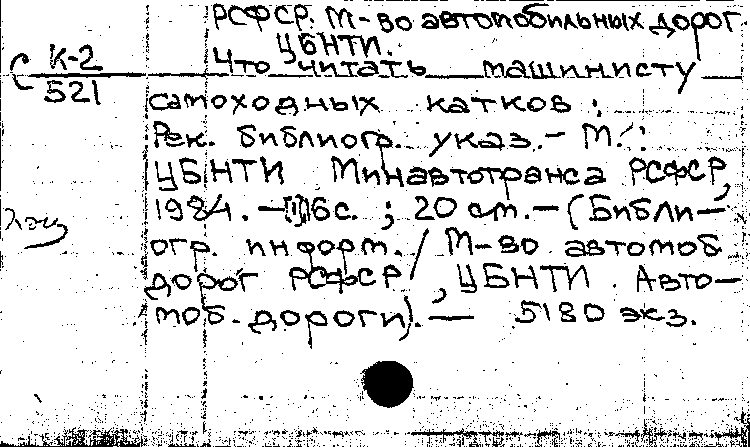 РСФСР. М-во автомобильных дорог.
ЦБНТИ.
С К-2
521
Что читать машинисту
самоходных катков :
Рек. библиогр. указ. – М. :
ЦБНТИ Минавтотранса РСФСР,
1984. – 16 с. ; 20 см. – (Библи-
огр. информ. / М-во автомоб.
дорог РСФСР, ЦБНТИ. Авто-
моб. дороги). – 5180 экз.